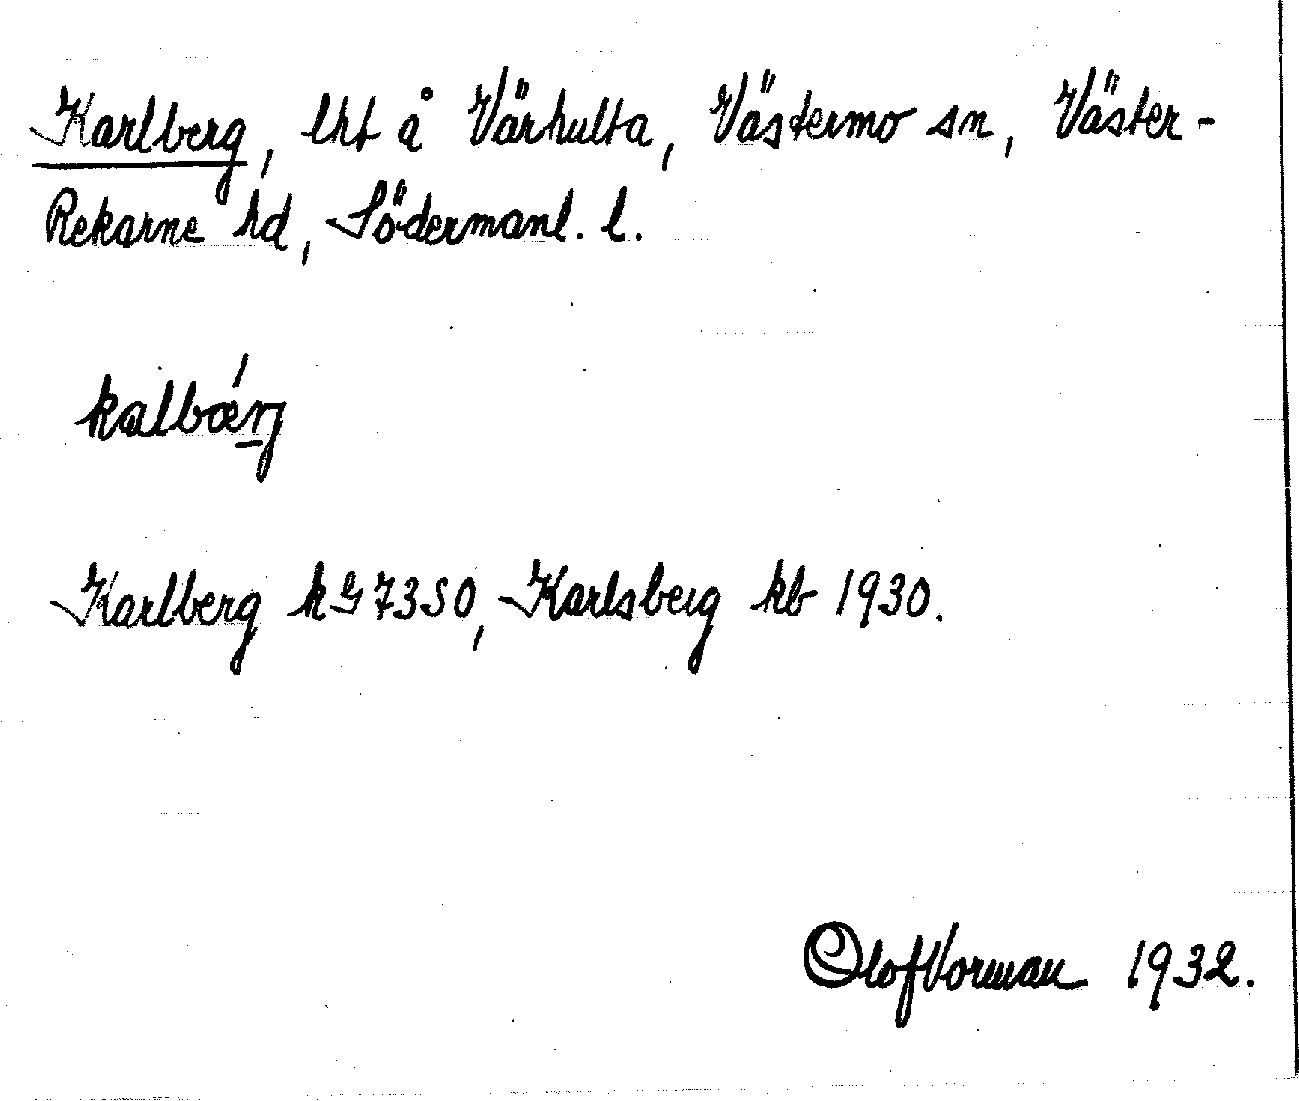 Karlberg, lht å Vårhulta, Västermo sn, Väster-
Rekarne hd, Södermanl. l.
kalbærj
Karlberg kG 7350, Karlsberg kb 1930.
Olof Vorman 1932.